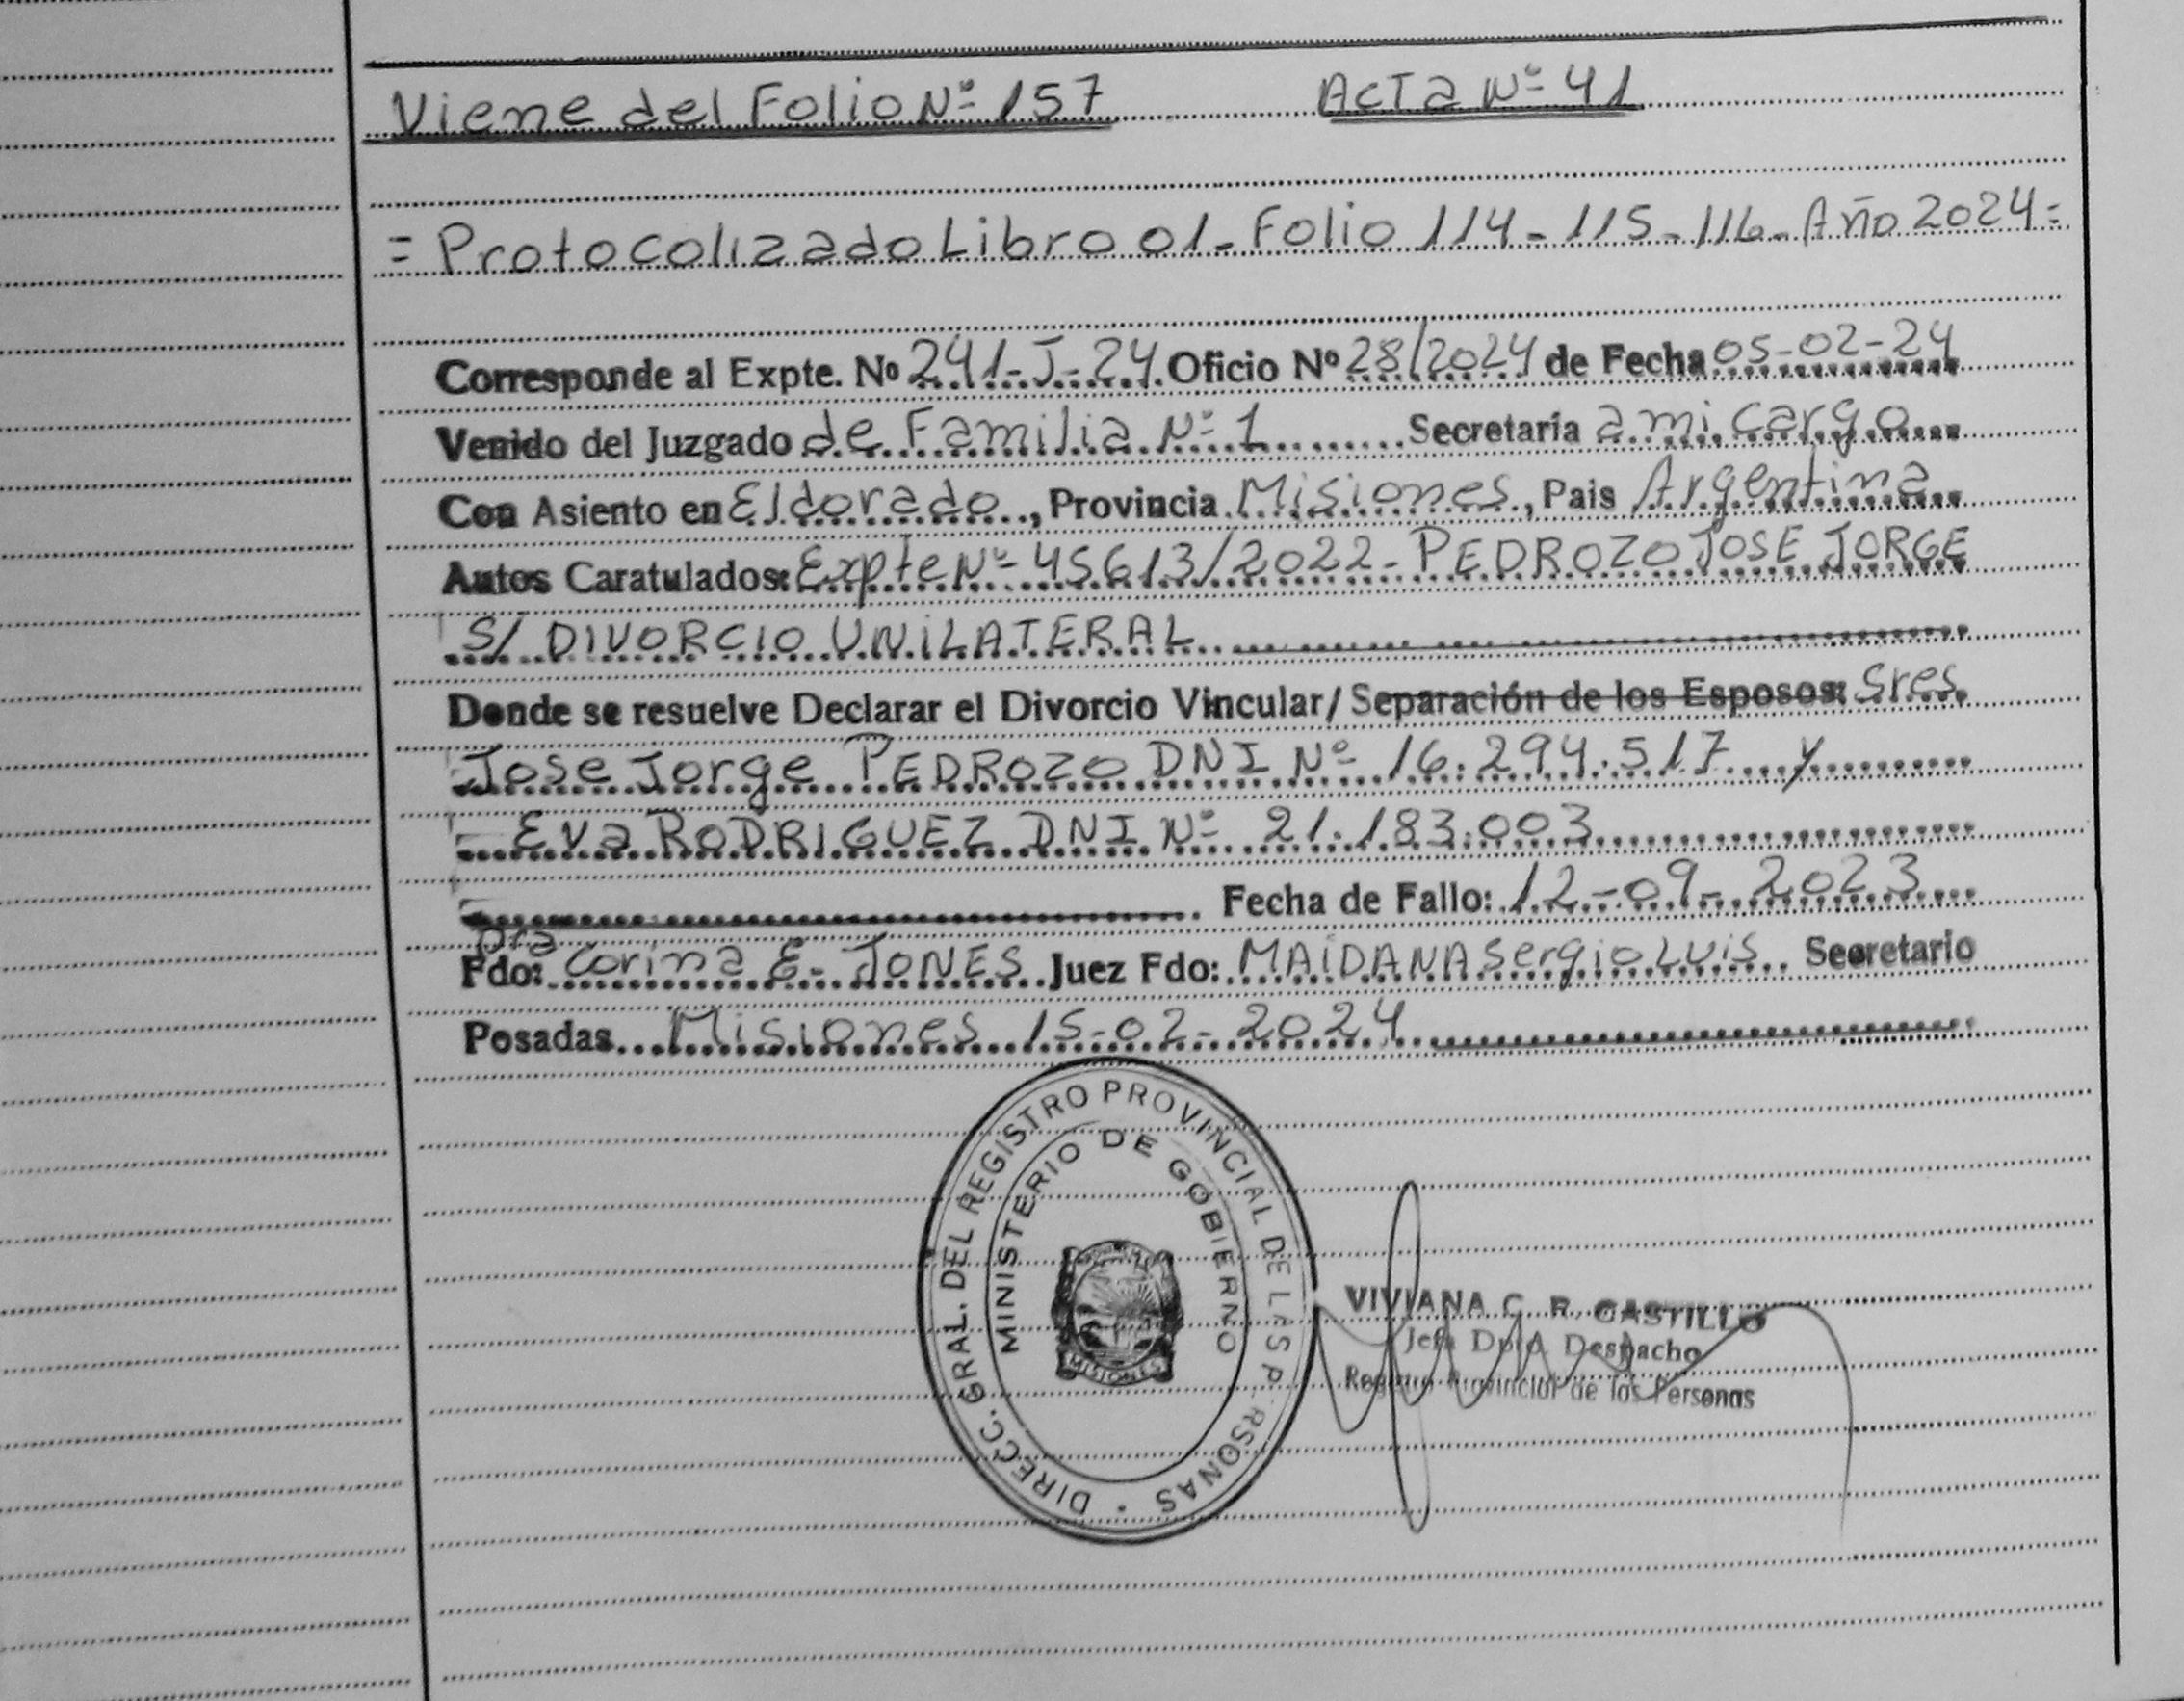 Viene del Folio Nº 157 Acta Nº 41
= Protocolizado Libro 01 - Folio 114 - 115 - 116 - Año 2024 =
Corresponde al Expte. Nº 241-J-24 Oficio Nº 28/2024 de Fecha 05-02-24
Venido del Juzgado de Familia Nº 1 Secretaría a mi cargo
Con Asiento en Eldorado, Provincia Misiones, Pais Argentina
Autos Caratulados: Expte Nº 45613/2022 - PEDROZO JOSE JORGE
S/ DIVORCIO UNILATERAL
Donde se resuelve Declarar el Divorcio Vincular/ Separación de los Esposos: Sres
Jose Jorge PEDROZO DNI Nº 16.294.517 y
Eva RODRIGUEZ DNI Nº 21.183.003
Fecha de Fallo: 12-09-2023
Dra
Fdo: Corina E. JONES Juez Fdo: MAIDANA Sergio Luis Secretario
Posadas Misiones 15-02-2024
DIRECC. GRAL. DEL REGISTRO PROVINCIAL DE LAS PERSONAS
MINISTERIO DE GOBIERNO
MISIONES
VIVIANA C. R. CASTILLO
Jefa Dpto. Despacho
Registro Provincial de las Personas